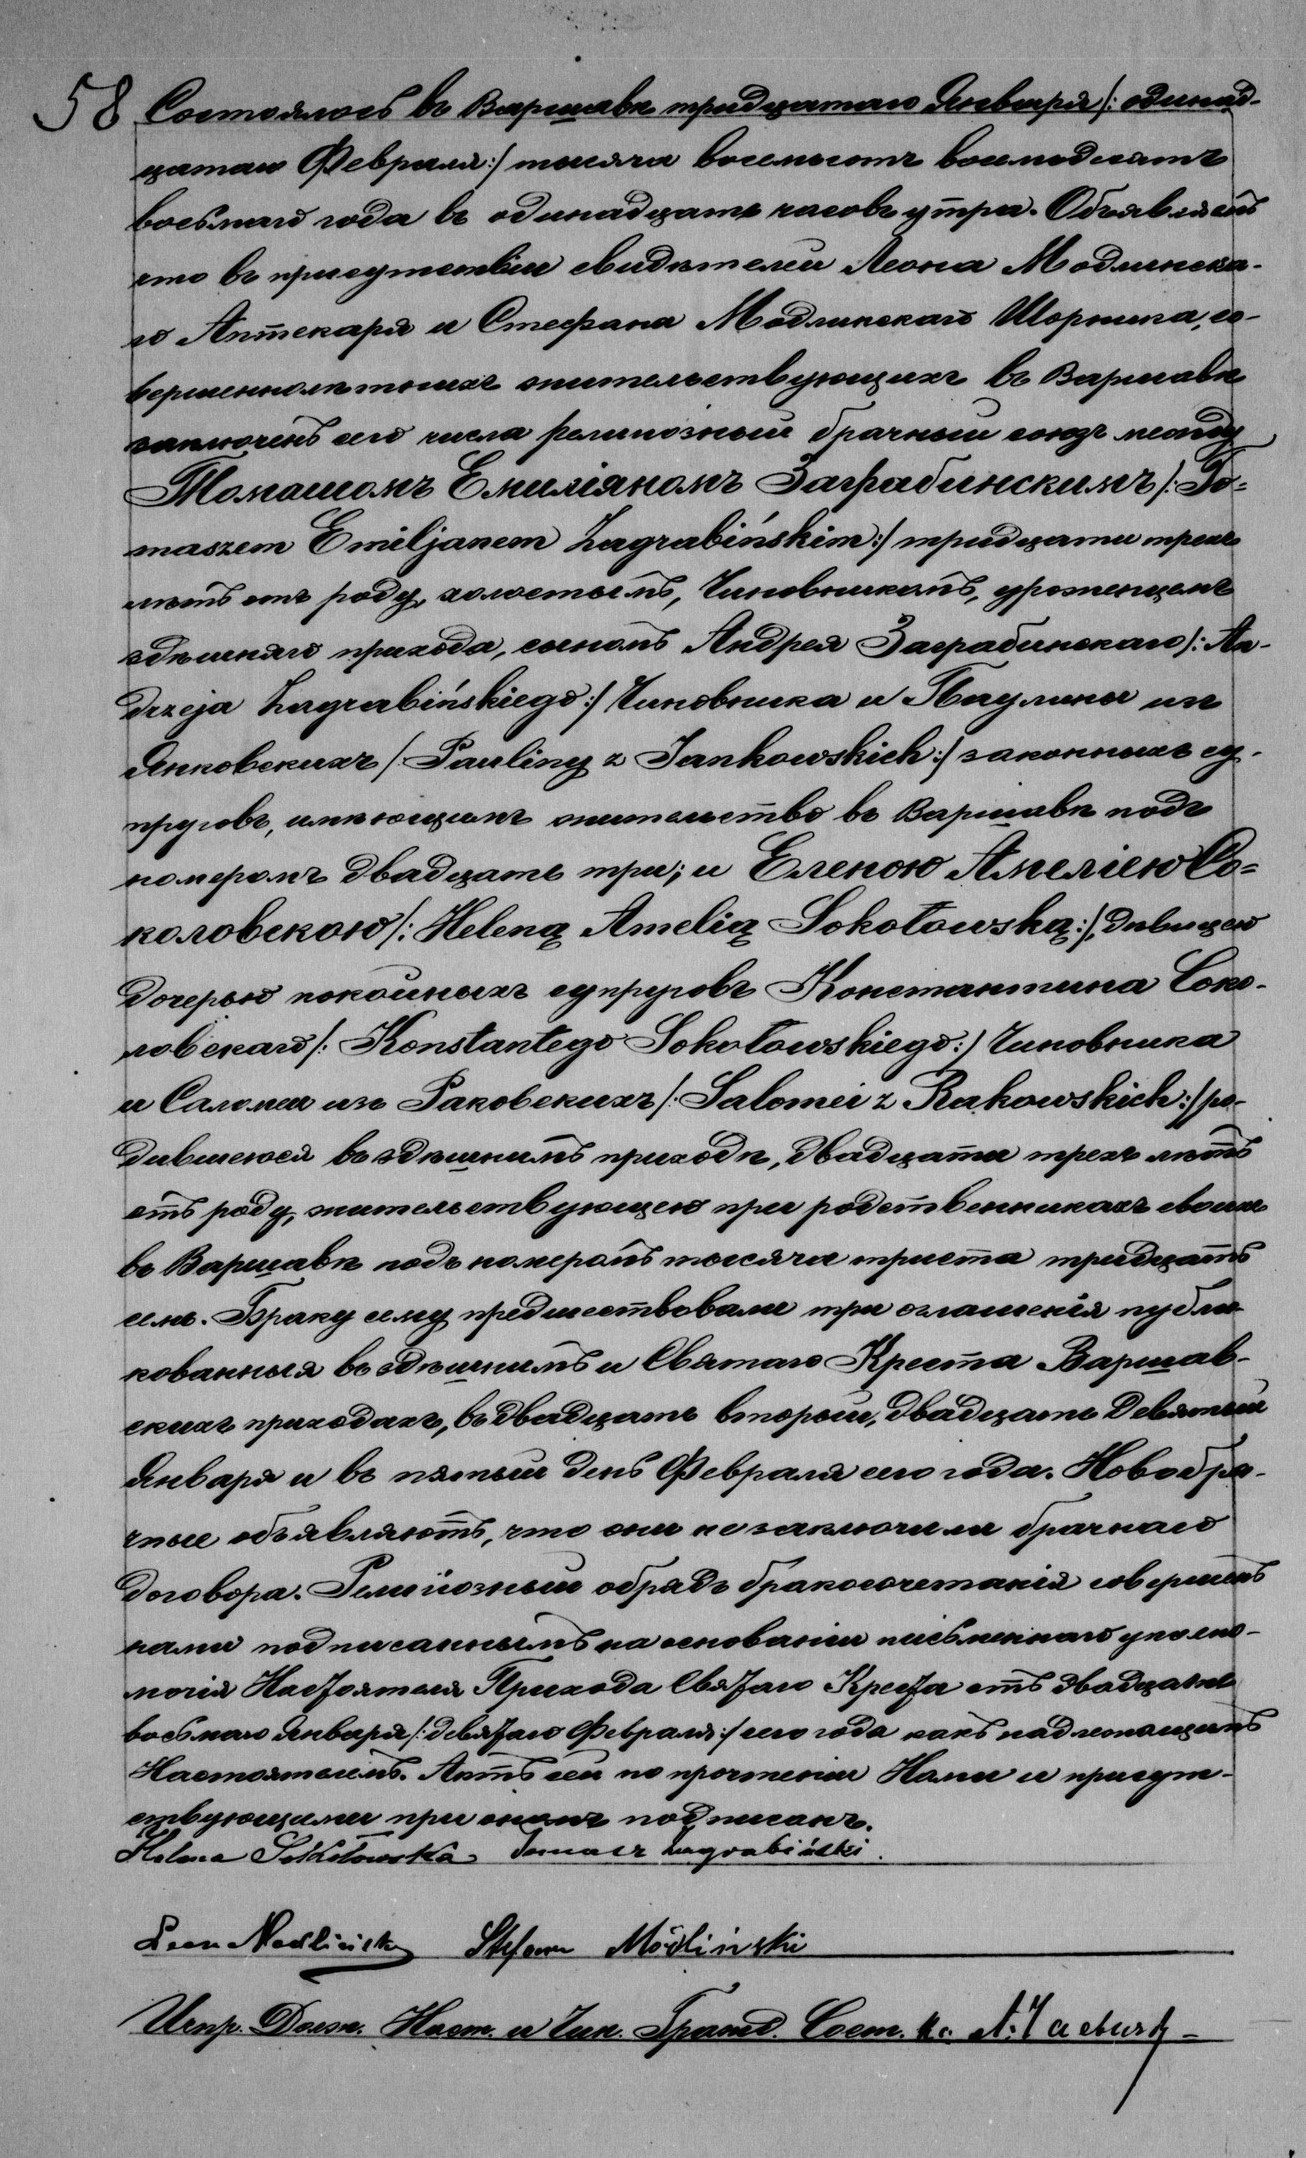 58 Состоялось въ Варшавѣ тридцатаго Января /: одинад-
цатаго Февраля :/ тысяча восемьсотъ восмьдесятъ
восьмаго года въ одинадцать часовъ утра. Объявляемъ
что въ присутствіи свидѣтелей Леона Модлинска-
го Аптекаря и Стефана Модлинскаго Шорника, со-
вершеннолѣтнихъ жительствующихъ въ Варшавѣ
заключенъ сего числа религіозный брачный союзъ между
Томашомъ Емиліяномъ Заграбинскимъ /: To=
maszem Emiljanem Zagrabińskim :/ тридцати трехъ
лѣтъ отъ роду, холостымъ, Чиновникомъ, уроженцемъ
здѣшняго прихода, сыномъ Андрея Заграбинскаго /: An-
drzeja Zagrabińskiego :/ Чиновника и Паулины изъ
Янковскихъ /: Pauliny z Jankowskich :/ законныхъ су-
пруговъ, имѣющимъ жительство въ Варшавѣ подъ
номеромъ двадцать три; и Еленою Амеліею Со=
коловскою /: Heleną Amelią Sokołowską :/, дѣвицею
дочерью покойныхъ супруговъ Константина Соко-
ловскаго /: Konstantego Sokołowskiego :/ Чиновника
и Саломеи изъ Раковскихъ /: Salomei z Rakowskich :/ ро-
дившеюся въ здѣшнимъ приходѣ, двадцати трехъ лѣтъ
отъ роду, жительствующею при родственникахъ своихъ
въ Варшавѣ подъ номеромъ тысяча триста тридцать
семь. Браку сему предшествовали три оглашенія публи-
кованныя въ здѣшнимъ и Святаго Креста Варшав-
скихъ приходахъ, въ двадцать вторый, двадцать девятый
Января и въ пятый день Февраля сего года. Новобра-
чные объявляютъ, что они не заключили брачнаго
договора. Религіозный обрядъ бракосочетанія совершенъ
нами подписаннымъ на основаніи письменнаго уполно-
мочія Настоятеля Прихода Святаго Креста отъ двадцать
восьмаго Января /: девятаго Февраля :/ сего года какъ надлежащимъ
Настоятелемъ. Актъ сей по прочтеніи Нами и присут-
ствующими при ономъ подписанъ.
Helena Sokołowska Tomasz Zagrabiński.
Leon Modliński Stefan Modliński
Испр. Долж. Наст. и Чин. Гражд. Сост. Кс. А.